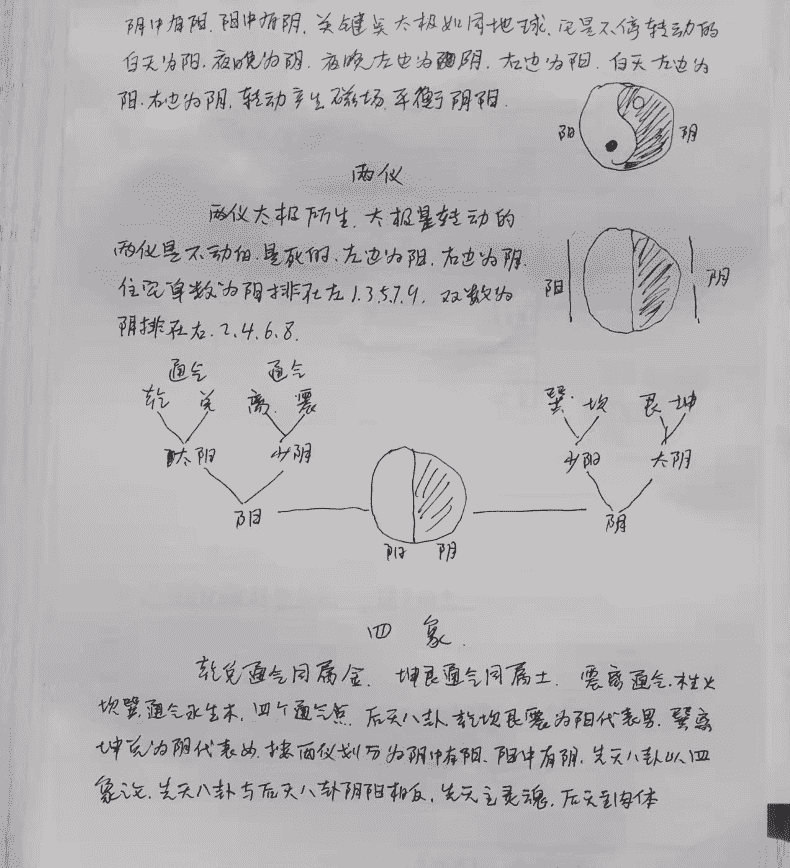 阴中有阳.阳中有阴.关键是太极如同地球.它是不停转动的
白天为阳.夜晚为阴.夜晚左边为阴.右边为阳.白天左边为
阳.右边为阴.转动产生磁场.平衡阴阳.
阳 阴
两仪
两仪太极所生.太极是转动的
两仪是不动的.是死的.左边为阳.右边为阴.
住宅单数为阳排在左1.3.5.7.9.双数为
阴排在右.2.4.6.8.
阳 阴
通气 通气
乾 兑 离.震 巽.坎 艮 坤
太阳 少阴 少阳 太阴
阳 阴
阳 阴
四象.
乾兑通气同属金.坤艮通气同属土.震离通气.木生火
坎巽通气水生木.四个通气点.后天八卦.乾坎艮震为阳代表男.巽离
坤兑为阴代表女.按两仪划分为阴中有阳.阳中有阴.先天八卦以四
象论.先天八卦与后天八卦阴阳相反.先天主灵魂.后天主肉体